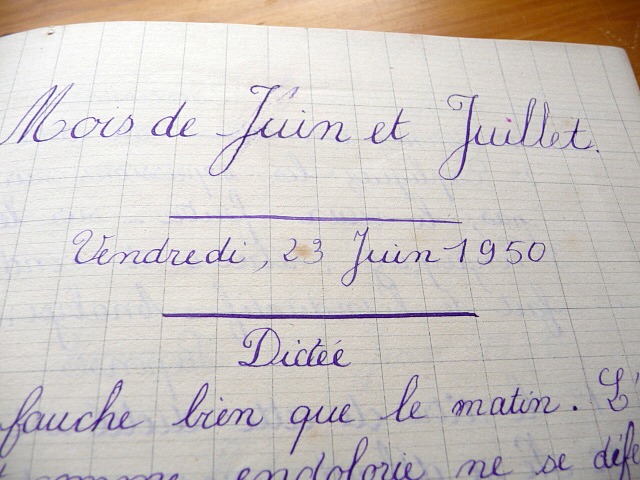 Mois de Juin et Juillet.
Vendredi, 23 Juin 1950
Dictée
fauche bien que le matin. L'
comme endolorie ne se défe